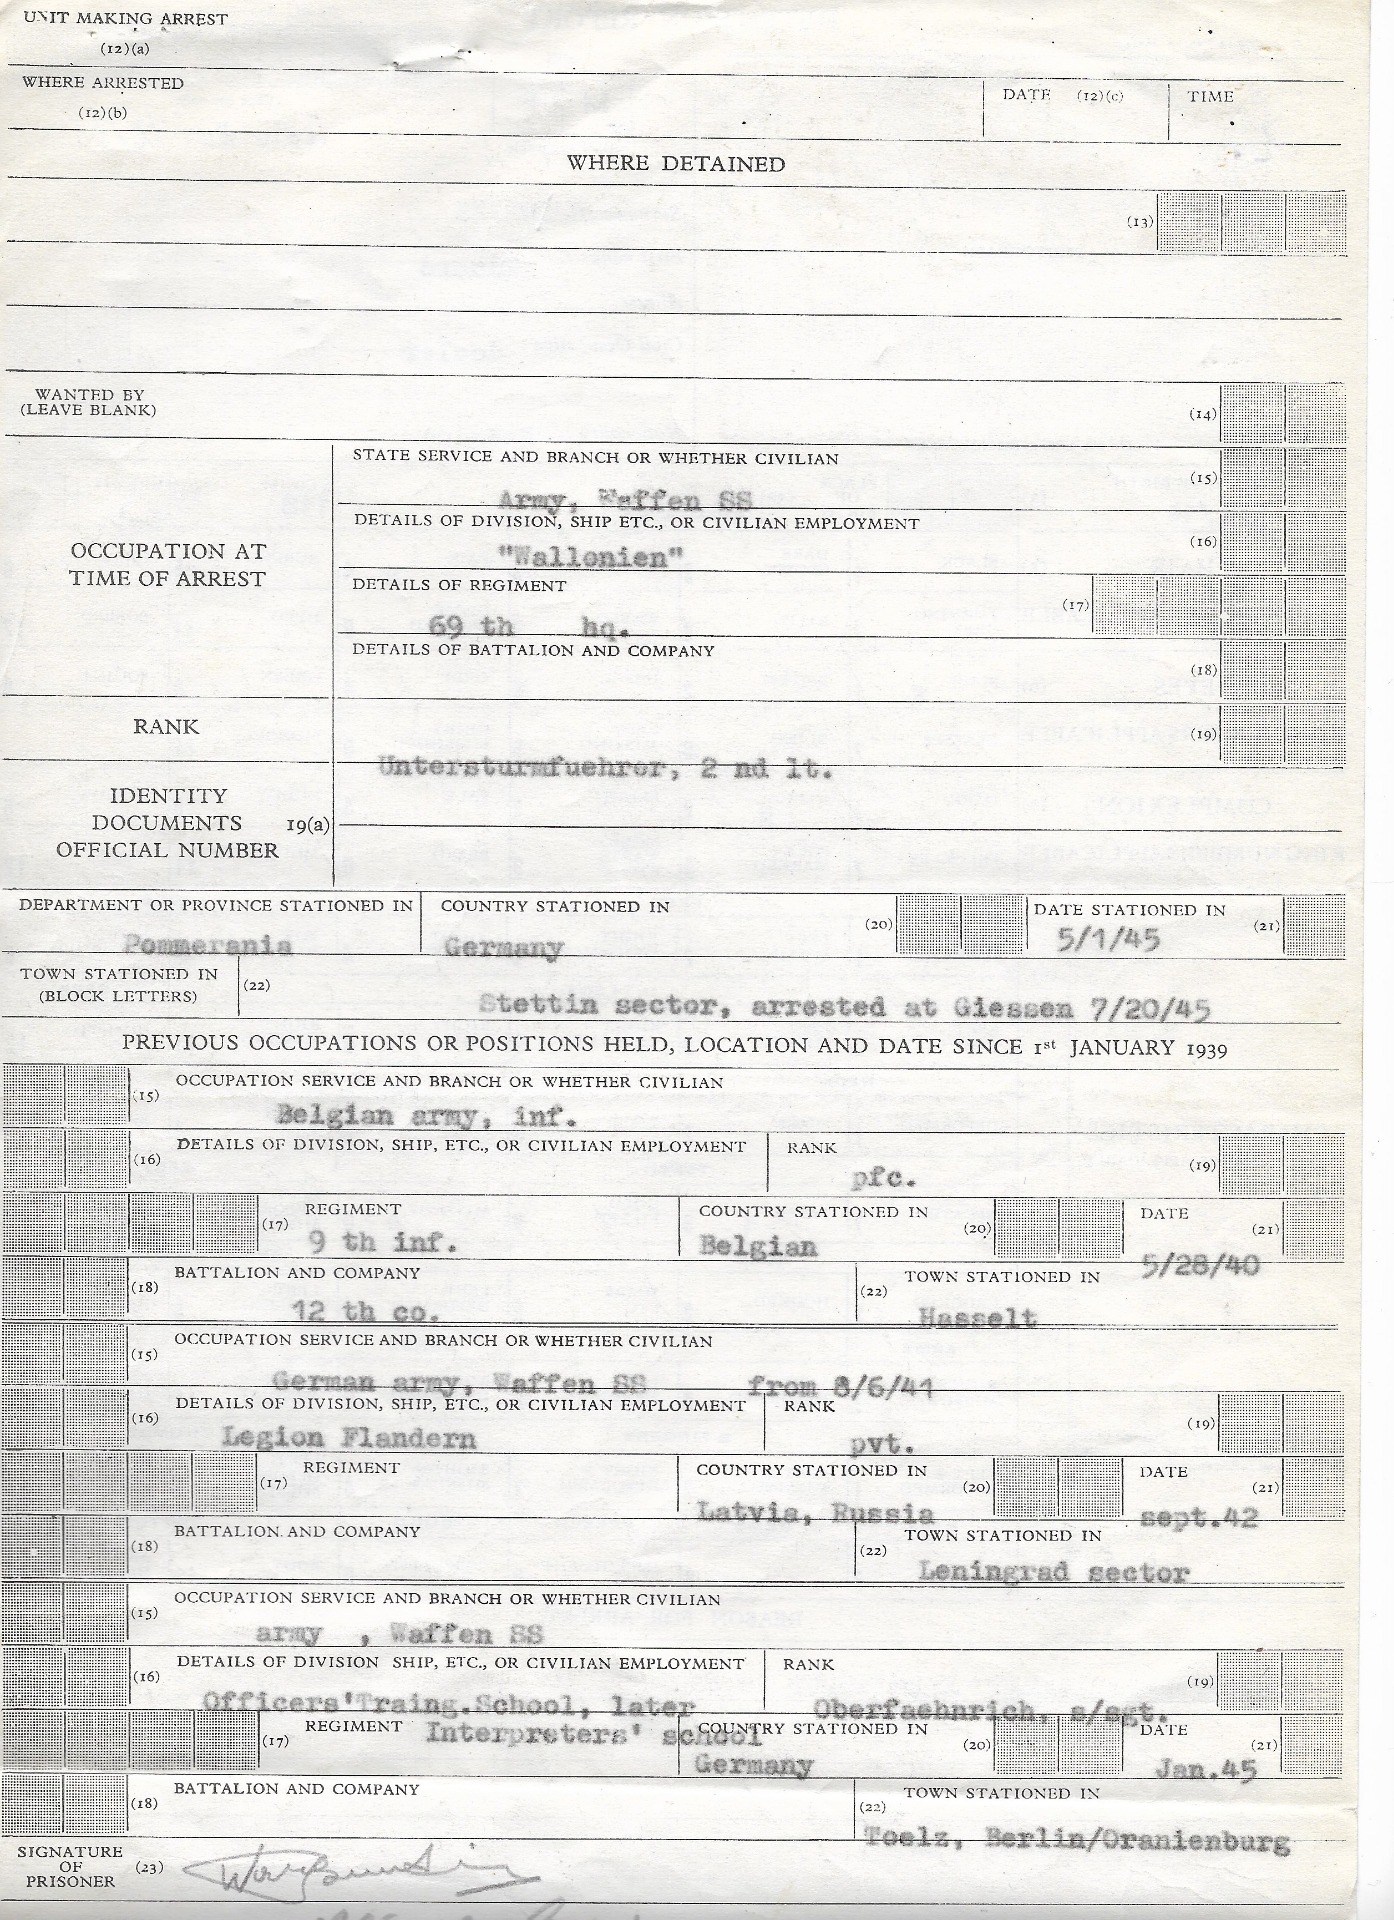 UNIT MAKING ARREST
(12)(a)
WHERE ARRESTED
(12)(b)
DATE (12)(c) TIME
WHERE DETAINED
(13)
WANTED BY
(LEAVE BLANK)
(14)
STATE SERVICE AND BRANCH OR WHETHER CIVILIAN
(15)
Army, Waffen SS
DETAILS OF DIVISION, SHIP ETC., OR CIVILIAN EMPLOYMENT
(16)
OCCUPATION AT
TIME OF ARREST
"Wallonien"
DETAILS OF REGIMENT
(17)
69 th hq.
DETAILS OF BATTALION AND COMPANY
(18)
RANK
(19)
Untersturmfuehrer, 2 nd lt.
IDENTITY
DOCUMENTS 19(a)
OFFICIAL NUMBER
DEPARTMENT OR PROVINCE STATIONED IN COUNTRY STATIONED IN (20) DATE STATIONED IN (21)
Pommerania Germany 5/1/45
TOWN STATIONED IN
(BLOCK LETTERS)
(22)
Stettin sector, arrested at Giessen 7/20/45
PREVIOUS OCCUPATIONS OR POSITIONS HELD, LOCATION AND DATE SINCE 1st JANUARY 1939
(15) OCCUPATION SERVICE AND BRANCH OR WHETHER CIVILIAN
Belgian army, inf.
(16) DETAILS OF DIVISION, SHIP, ETC., OR CIVILIAN EMPLOYMENT RANK (19)
pfc.
(17) REGIMENT COUNTRY STATIONED IN (20) DATE (21)
9 th inf. Belgian 5/28/40
(18) BATTALION AND COMPANY (22) TOWN STATIONED IN
12 th co. Hasselt
(15) OCCUPATION SERVICE AND BRANCH OR WHETHER CIVILIAN
German army, Waffen SS from 8/6/41
(16) DETAILS OF DIVISION, SHIP, ETC., OR CIVILIAN EMPLOYMENT RANK (19)
Legion Flandern pvt.
(17) REGIMENT COUNTRY STATIONED IN (20) DATE (21)
Latvia, Russia sept.42
(18) BATTALION AND COMPANY (22) TOWN STATIONED IN
Leningrad sector
(15) OCCUPATION SERVICE AND BRANCH OR WHETHER CIVILIAN
army , Waffen SS
(16) DETAILS OF DIVISION SHIP, ETC., OR CIVILIAN EMPLOYMENT RANK (19)
Officers'Traing.School, later Oberfaehnrich, s/sgt.
(17) REGIMENT Interpreters' school COUNTRY STATIONED IN (20) DATE (21)
Germany Jan.45
(18) BATTALION AND COMPANY (22) TOWN STATIONED IN
Toelz, Berlin/Oranienburg
SIGNATURE
OF
PRISONER
(23)